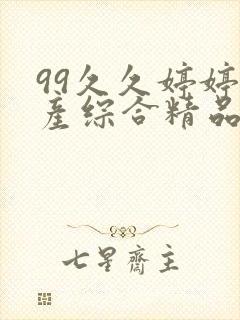 99久久婷婷
産综合精品
七星齋主